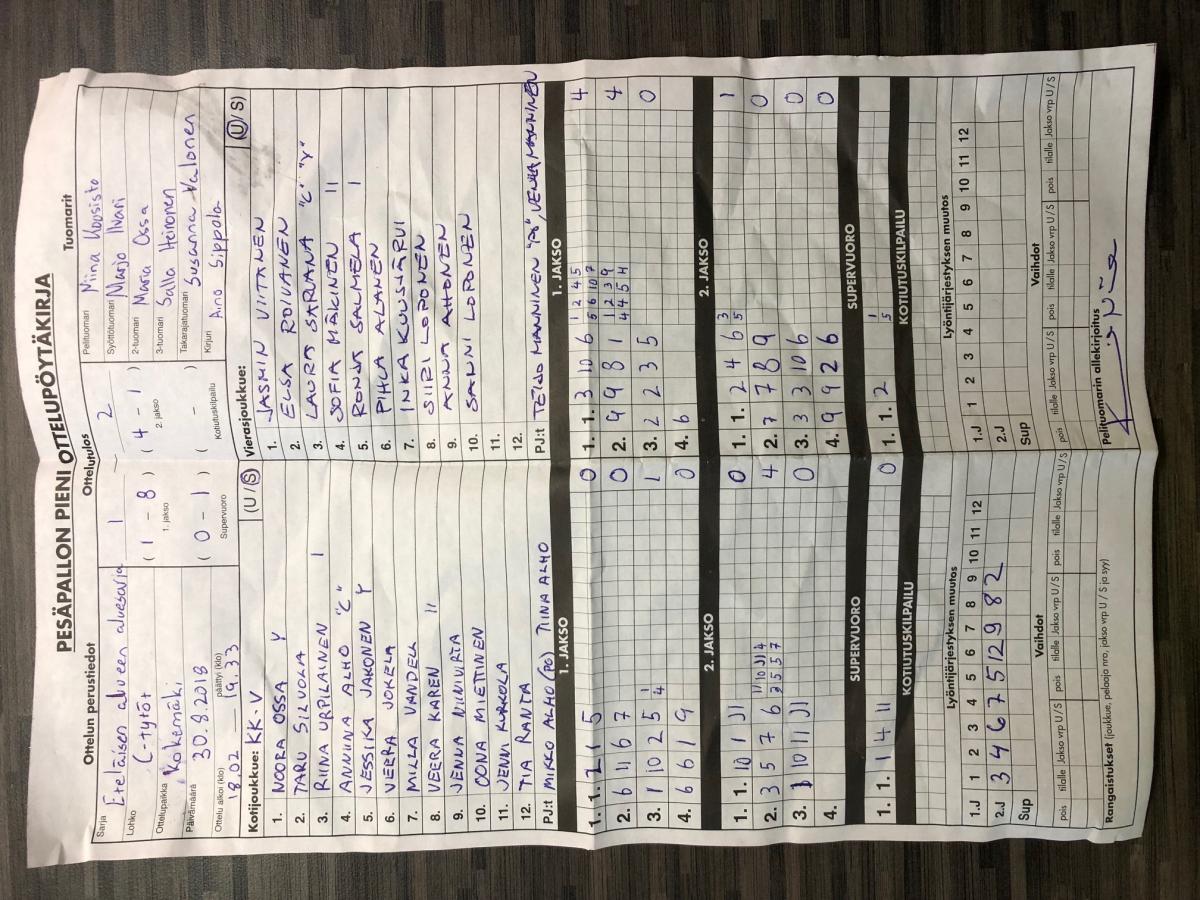 PESÄPALLON PIENI OTTELUPÖYTÄKIRJA
Ottelun perustiedot
Ottelutulos
Tuomarit
Sarja Eteläisen alueen aluesarja
Lohko C-tytöt
Ottelupaikka Kokemäki
Päivämäärä 30.8.2018
Ottelu alkoi (klo) 18.02 — päättyi (klo) 19.33
1 – 2
( 1 – 8 ) ( 4 – 1 )
1. jakso 2. jakso
( 0 – 1 ) ( – )
Supervuoro Kotiutuskilpailu
Pelituomari Miina Koosisto
Syöttötuomari Marjo Ilvari
2-tuomari Maria Ossa
3-tuomari Salla Heinonen
Takarajatuomari Susanna Valonen
Kirjuri Aino Sippola
Kotijoukkue: KK-V (U/S)
1. NOORA OSSA Y
2. TARU SILVOLA
3. RIINA URPILAINEN I
4. ANNIINA ALHO "C"
5. JESSIKA JAKONEN Y
6. VEERA JOKELA
7. MILLA VANDELL
8. VEERA KAREN II
9. JENNA NIINIVIRTA
10. OONA MIETTINEN
11. JENNI KURKOLA
12. TIA RANTA
PJ:t MIKKO ALHO (PG) TIINA ALHO
Vierasjoukkue: (U/S)
1. JASMIN VIITANEN
2. ELSA ROIVANEN
3. LAURA SARVANA "C" "Y"
4. SOFIA MÄKINEN II
5. RONJA SALMELA I
6. PIHLA ALANEN
7. INKA KUUSJÄRVI
8. SIIRI LOPONEN
9. ANNA AHONEN
10. SANNI LOPONEN
11.
12.
PJ:t TEIJO MANNINEN "PG", VENLA MANNINEN
1. JAKSO
1. 1. 2 1 5 0
2. 6 11 6 7 0
3. 1 10 2 5 1 4 1
4. 6 6 1 9 0
2. JAKSO
1. 1. 10 1 11 0
2. 3 5 7 6 11 10 11 4 3 5 5 7 4
3. 1 10 11 11 0
4.
SUPERVUORO
1. 1. 1 4 11 0
KOTIUTUSKILPAILU
1. JAKSO
1. 1. 3 10 6 1 2 4 5 5 6 10 7 4
2. 9 9 8 1 1 2 3 9 4 4 5 4 4
3. 2 2 3 5 0
4. 6
2. JAKSO
1. 1. 2 4 6 3 5 1
2. 7 7 8 9 0
3. 3 3 10 6 0
4. 9 9 2 6 0
SUPERVUORO
1. 1. 2 1 5
KOTIUTUSKILPAILU
Lyöntijärjestyksen muutos
1 2 3 4 5 6 7 8 9 10 11 12
1.J
2.J 3 4 6 7 5 12 9 8 2
Sup
Vaihdot
pois tilalle Jakso vrp U/S pois tilalle Jakso vrp U/S pois tilalle Jakso vrp U/S
Lyöntijärjestyksen muutos
1 2 3 4 5 6 7 8 9 10 11 12
1.J
2.J
Sup
Vaihdot
pois tilalle Jakso vrp U/S pois tilalle Jakso vrp U/S pois tilalle Jakso vrp U/S
Rangaistukset (joukkue, pelaaja nro, jakso vrp U / S ja syy)
Pelituomarin allekirjoitus